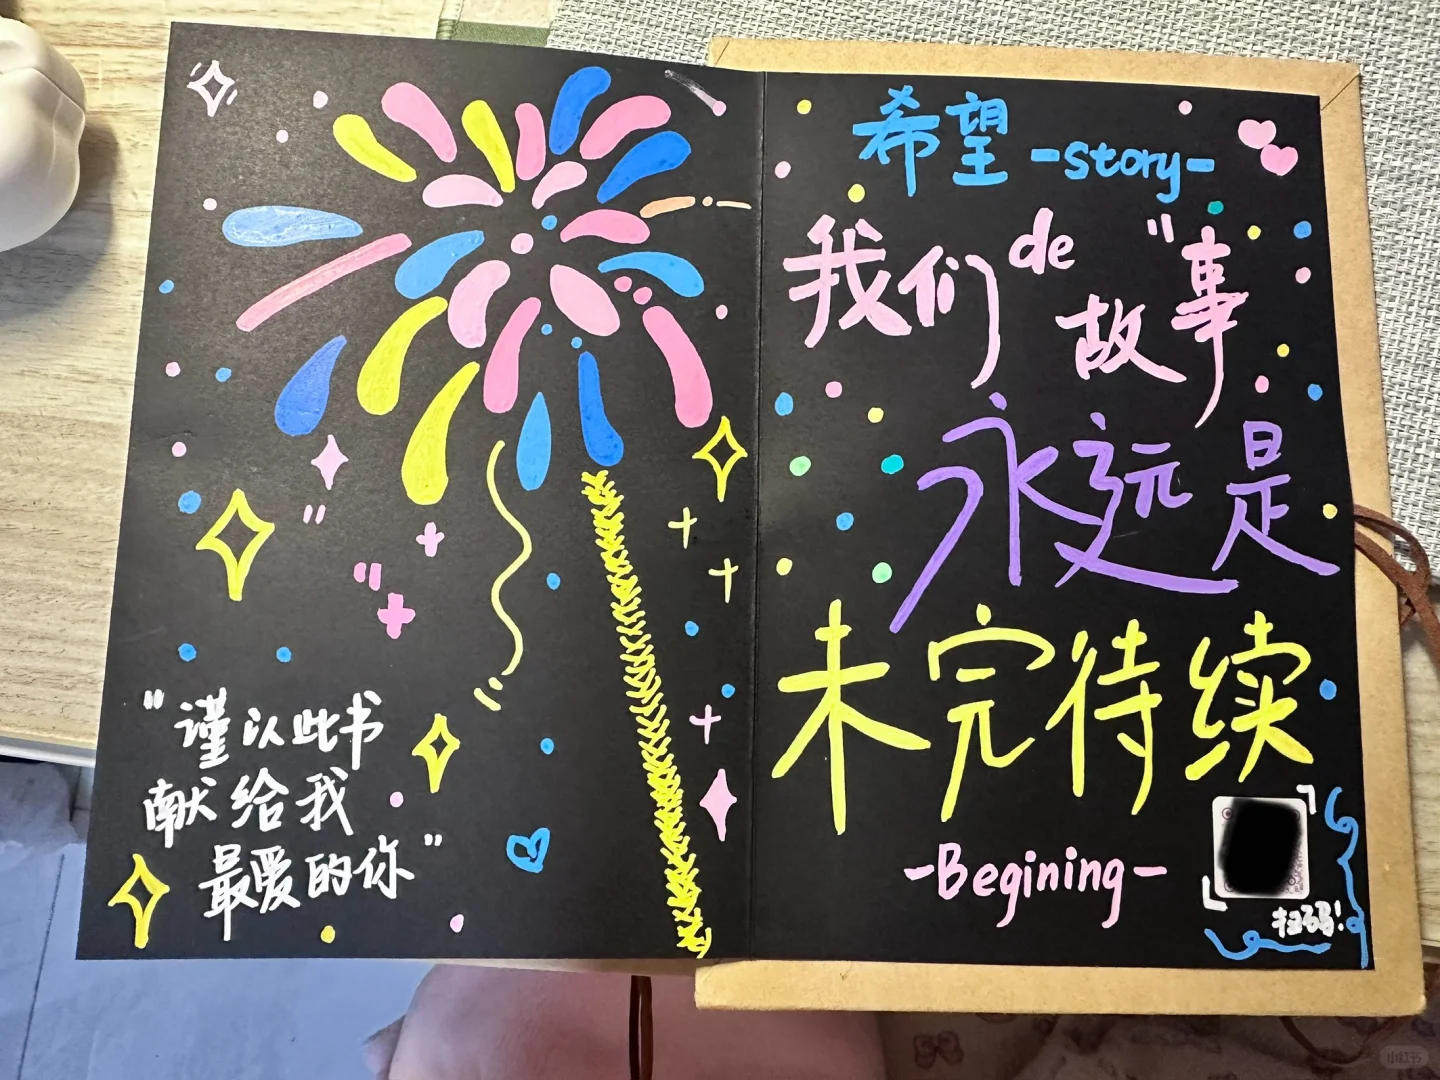 "谨以此书
献给我
最爱的你"
希望-story-
我们de"故事
永远是
未完待续
-Begining-
扫码!
小红书